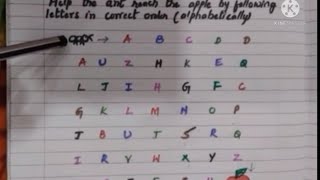 Help the ant reach the apple by following
letters in correct order (alphabetically)
→ A B C D D
A U Z H K E Q
L J I H G F C
G K L M N O P
J B U T S R Q
I R V W X Y Z